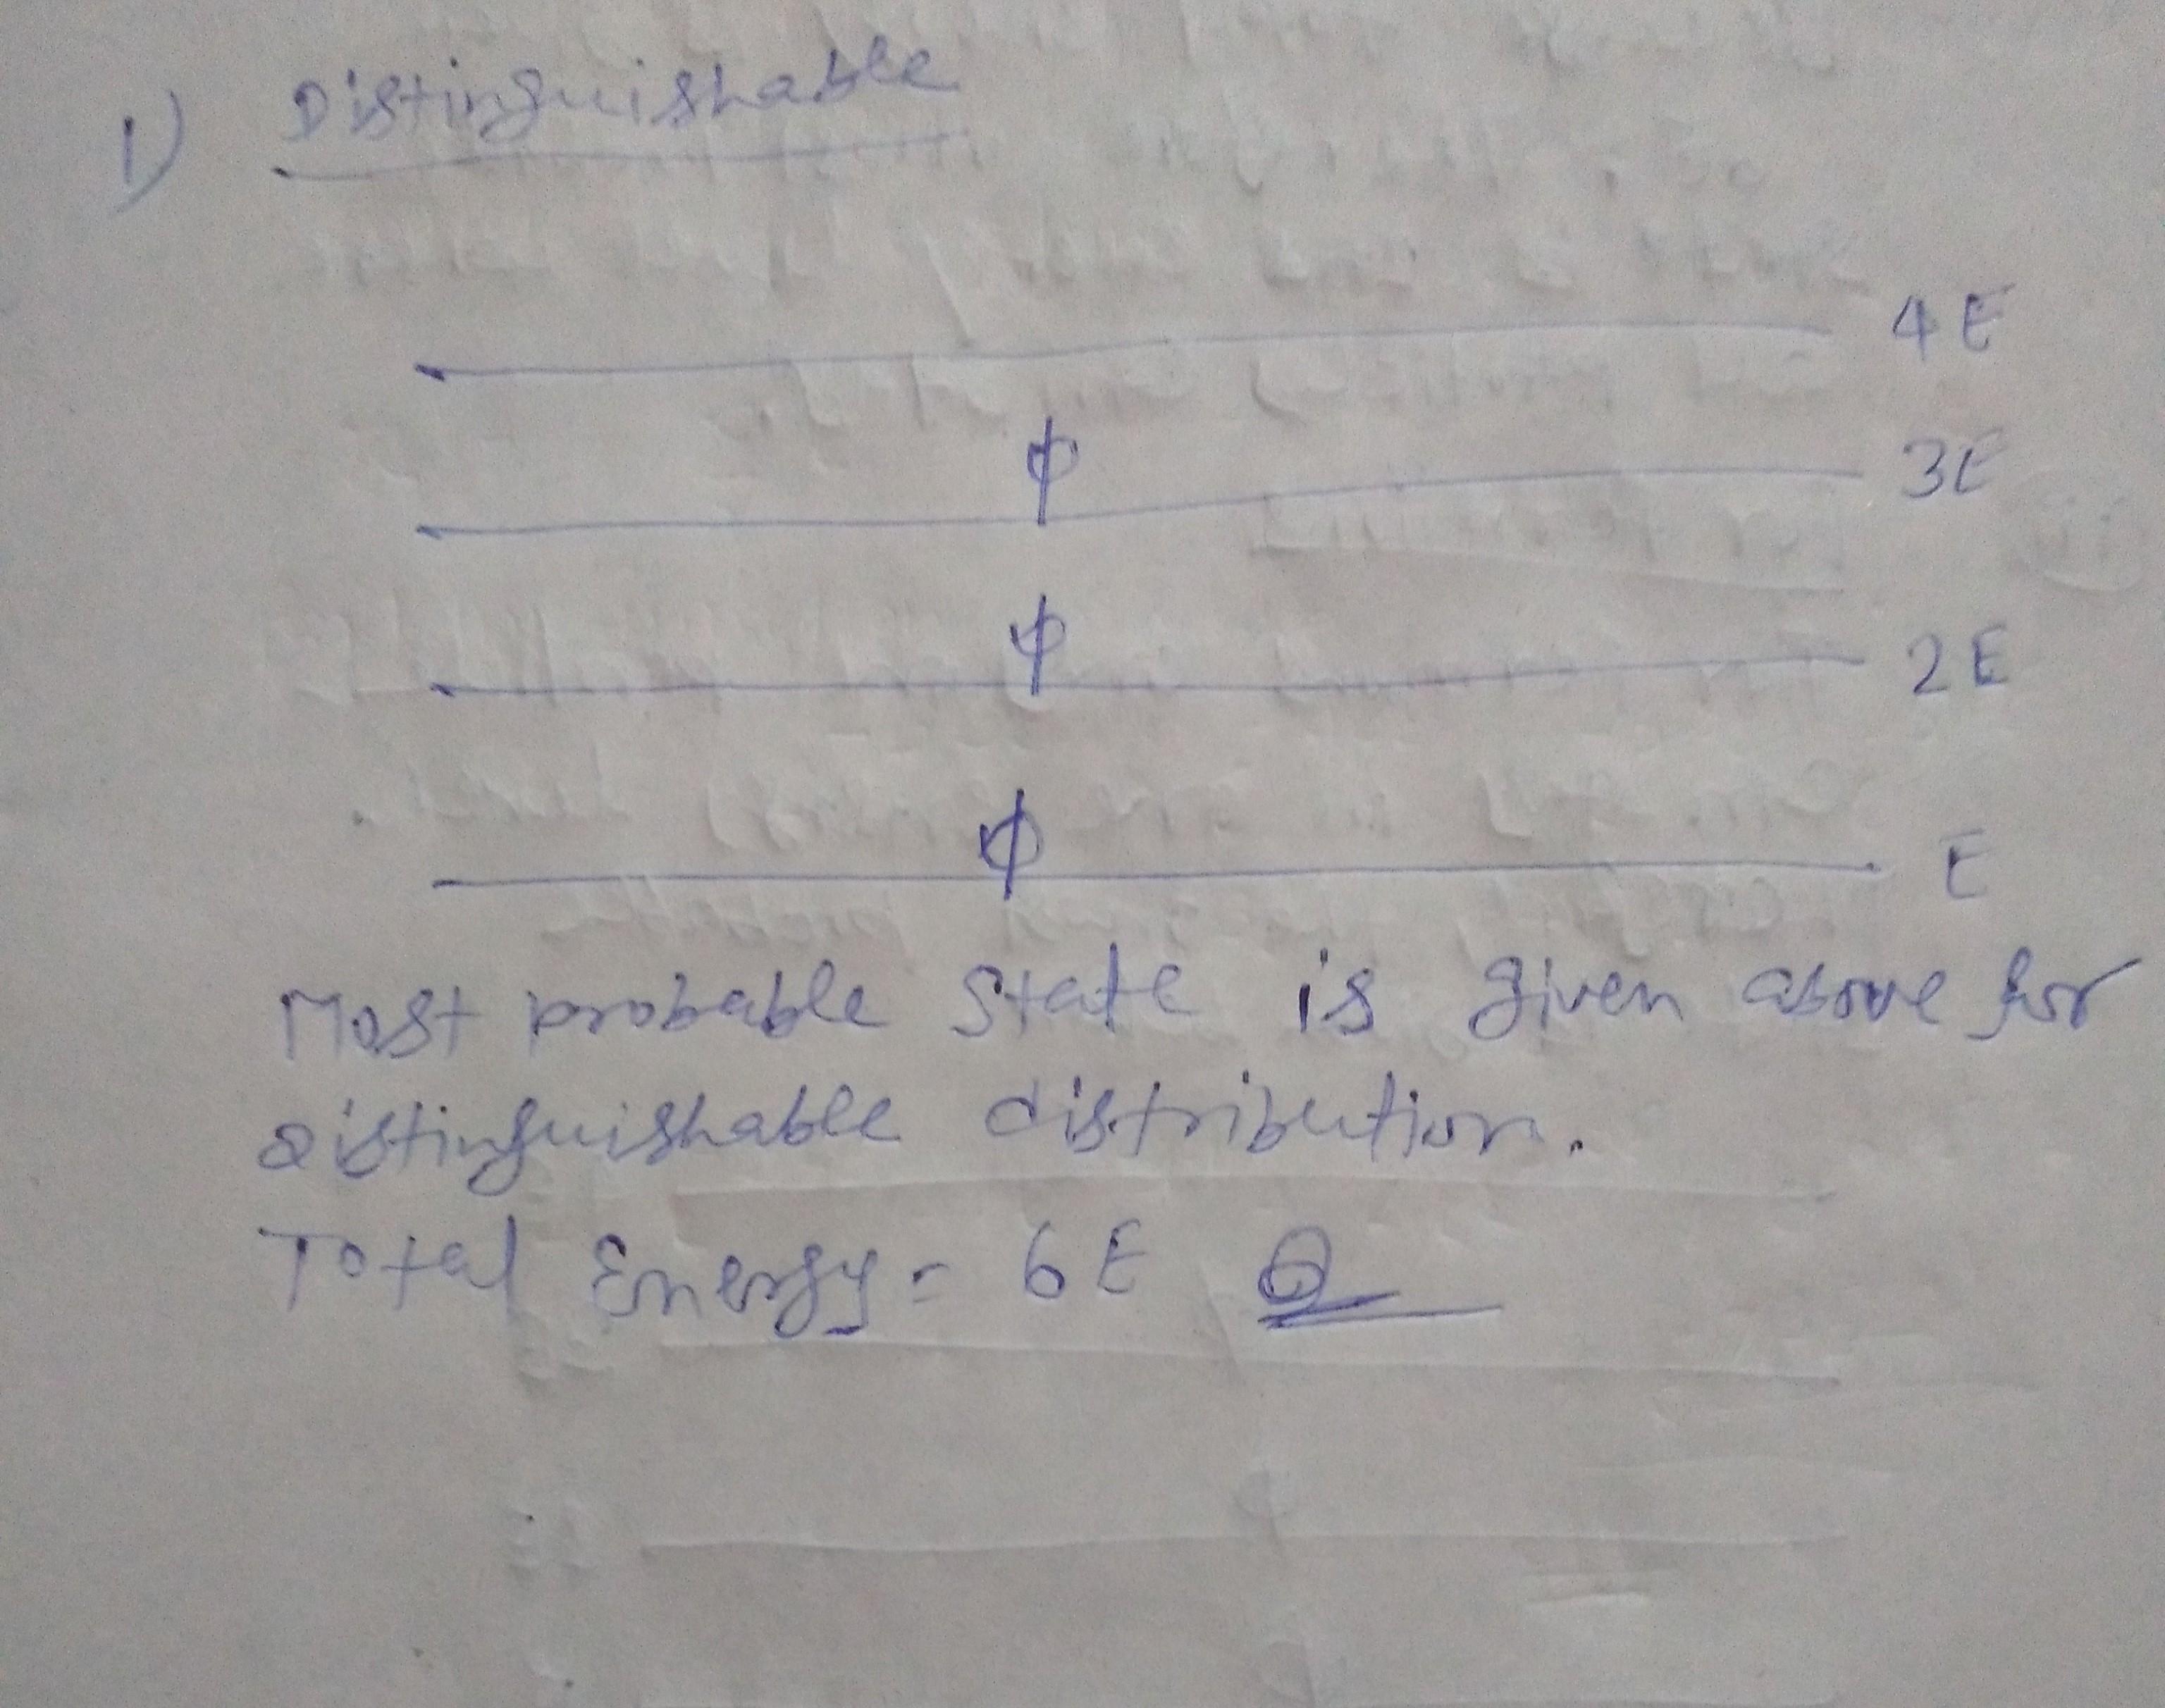 1) Distinguishable
4E
3E
2E
E
Most probable state is given above for
distinguishable distribution.
Total Energy = 6E